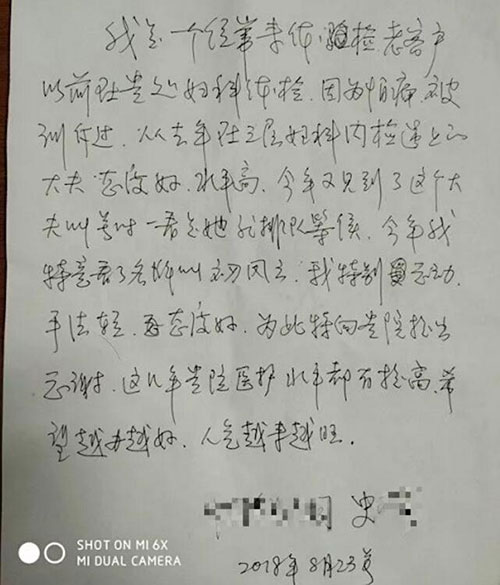 我是一个经常来体检老客户
以前在贵处妇科体检.因为怕痛被
训斥过.从去年在三层妇科内检遇上的
大夫态度好.水平高.今年又见到了这个大
夫叫号时一看是她就排队等候.今年我
特意看了名牌叫 风云.我特别 感动.
手法轻.再态度好.为此特向贵院提出
感谢.这几年贵院医护水平都有提高.希
望越办越好.人气越来越旺.
史
2018年8月23
SHOT ON MI 6X
MI DUAL CAMERA